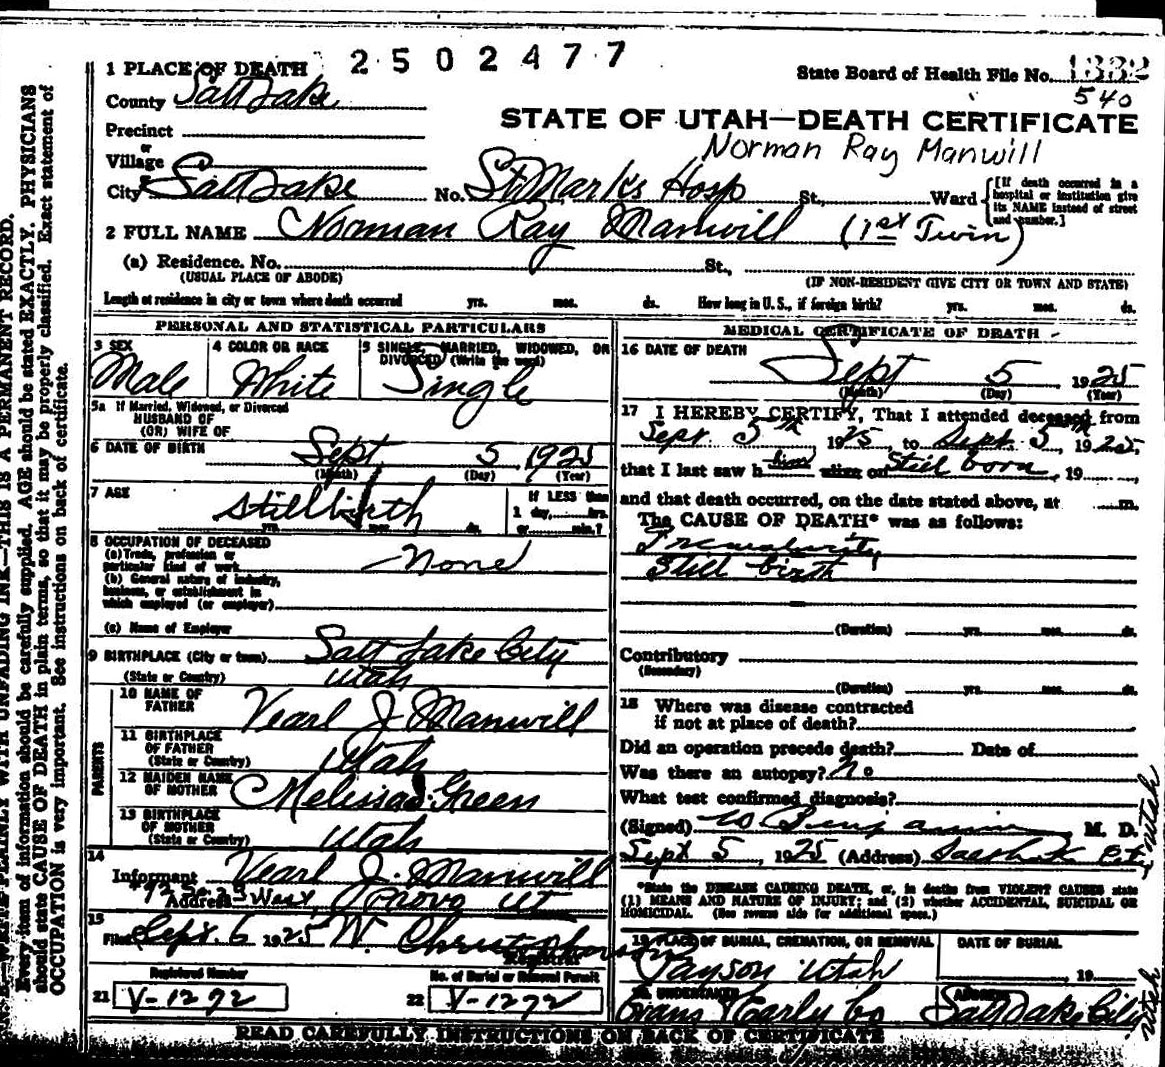 2502477
1 PLACE OF DEATH
State Board of Health File No. 1332
540
County Salt Lake
STATE OF UTAH—DEATH CERTIFICATE
Precinct
or
Village
Norman Ray Manwill
or
City Salt Lake No. St Marks Hosp St., Ward [If death occurred in a hospital or institution give its NAME instead of street and number.]
2 FULL NAME Norman Ray Manwill (1st Twin)
(a) Residence. No. St.,
(USUAL PLACE OF ABODE) (IF NON-RESIDENT GIVE CITY OR TOWN AND STATE)
Length of residence in city or town where death occurred yrs. mos. ds. How long in U. S., if foreign birth? yrs. mos. ds.
PERSONAL AND STATISTICAL PARTICULARS
3 SEX
Male
4 COLOR OR RACE
White
5 SINGLE, MARRIED, WIDOWED, OR DIVORCED (Write the word)
Single
5a If Married, Widowed, or Divorced
HUSBAND OF
(OR) WIFE OF
6 DATE OF BIRTH Sept 5, 1925
(Month) (Day) (Year)
7 AGE stillbirth
yrs. mos. ds.
If LESS than
1 day, hrs.
or min.?
8 OCCUPATION OF DECEASED
(a) Trade, profession or
particular kind of work None
(b) General nature of industry,
business, or establishment in
which employed (or employer)
(c) Name of Employer
9 BIRTHPLACE (City or town) Salt Lake City
(State or Country) Utah
PARENTS
10 NAME OF
FATHER Vearl J Manwill
11 BIRTHPLACE
OF FATHER
(State or Country) Utah
12 MAIDEN NAME
OF MOTHER Melissa Green
13 BIRTHPLACE
OF MOTHER
(State or Country) Utah
14
Informant Vearl J. Manwill
Address West, Provo Ut
15
Filed Sept. 6 1925 W. Christopherson
Registrar
Registered Number
21 V-1292
No. of Burial or Removal Permit
22 V-1292
MEDICAL CERTIFICATE OF DEATH
16 DATE OF DEATH
Sept 5 1925
(Month) (Day) (Year)
17 I HEREBY CERTIFY, That I attended deceased from
Sept. 5th 1925 to Sept. 5th 1925,
that I last saw him alive on Still born, 19
and that death occurred, on the date stated above, at m.
The CAUSE OF DEATH* was as follows:
Prematurity
Still birth
(Duration) yrs. mos. ds.
Contributory
(Secondary)
(Duration) yrs. mos. ds.
18 Where was disease contracted
if not at place of death?
Did an operation precede death? Date of
Was there an autopsy? No
What test confirmed diagnosis?
(Signed) M. D.
Sept 5, 1925 (Address)
*State the DISEASE CAUSING DEATH, or, in deaths from VIOLENT CAUSES state
(1) MEANS AND NATURE OF INJURY; and (2) whether ACCIDENTAL, SUICIDAL OR
HOMICIDAL. (See reverse side for additional space.)
19 PLACE OF BURIAL, CREMATION, OR REMOVAL
Payson Utah
DATE OF BURIAL
19
20 UNDERTAKER
Evans & Early Co
ADDRESS
Salt Lake City
Utah
READ CAREFULLY INSTRUCTIONS ON BACK OF CERTIFICATE
WRITE PLAINLY WITH UNFADING INK—THIS IS A PERMANENT RECORD.
Every item of information should be carefully supplied. AGE should be stated EXACTLY. PHYSICIANS
should state CAUSE OF DEATH in plain terms, so that it may be properly classified. Exact statement of
OCCUPATION is very important. See instructions on back of certificate.